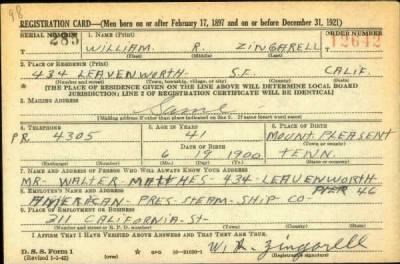 98
REGISTRATION CARD—(Men born on or after February 17, 1897 and on or before December 31, 1921)
SERIAL NUMBER 1. NAME (Print) ORDER NUMBER
285 WILLIAM R. ZINGARELL 12642
(First) (Middle) (Last)
2. PLACE OF RESIDENCE (Print)
434 LEAVENWORTH S.F. CALIF.
(Number and street) (Town, township, village, or city) (County) (State)
[THE PLACE OF RESIDENCE GIVEN ON THE LINE ABOVE WILL DETERMINE LOCAL BOARD
JURISDICTION; LINE 2 OF REGISTRATION CERTIFICATE WILL BE IDENTICAL]
3. MAILING ADDRESS
Same
[Mailing address if other than place indicated on line 2. If same insert word same]
4. TELEPHONE 5. AGE IN YEARS 6. PLACE OF BIRTH
PR 4305 41 MOUNT PLEASENT
DATE OF BIRTH (Town or county)
6 19 1900 TENN.
(Exchange) (Number) (Mo.) (Day) (Yr.) (State or country)
7. NAME AND ADDRESS OF PERSON WHO WILL ALWAYS KNOW YOUR ADDRESS
MR- WALTER MATTHES- 434-LEAVENWORTH
8. EMPLOYER'S NAME AND ADDRESS PIER 46
AMERICAN- PRES- STEAM-SHIP CO-
9. PLACE OF EMPLOYMENT OR BUSINESS
311 CALIFORNIA-St-
(Number and street or R. F. D. number) (Town) (County) (State)
I AFFIRM THAT I HAVE VERIFIED ABOVE ANSWERS AND THAT THEY ARE TRUE.
D. S. S. Form 1
(Revised 1-1-42) (over) W. R. Zingarell
(Registrant's signature)